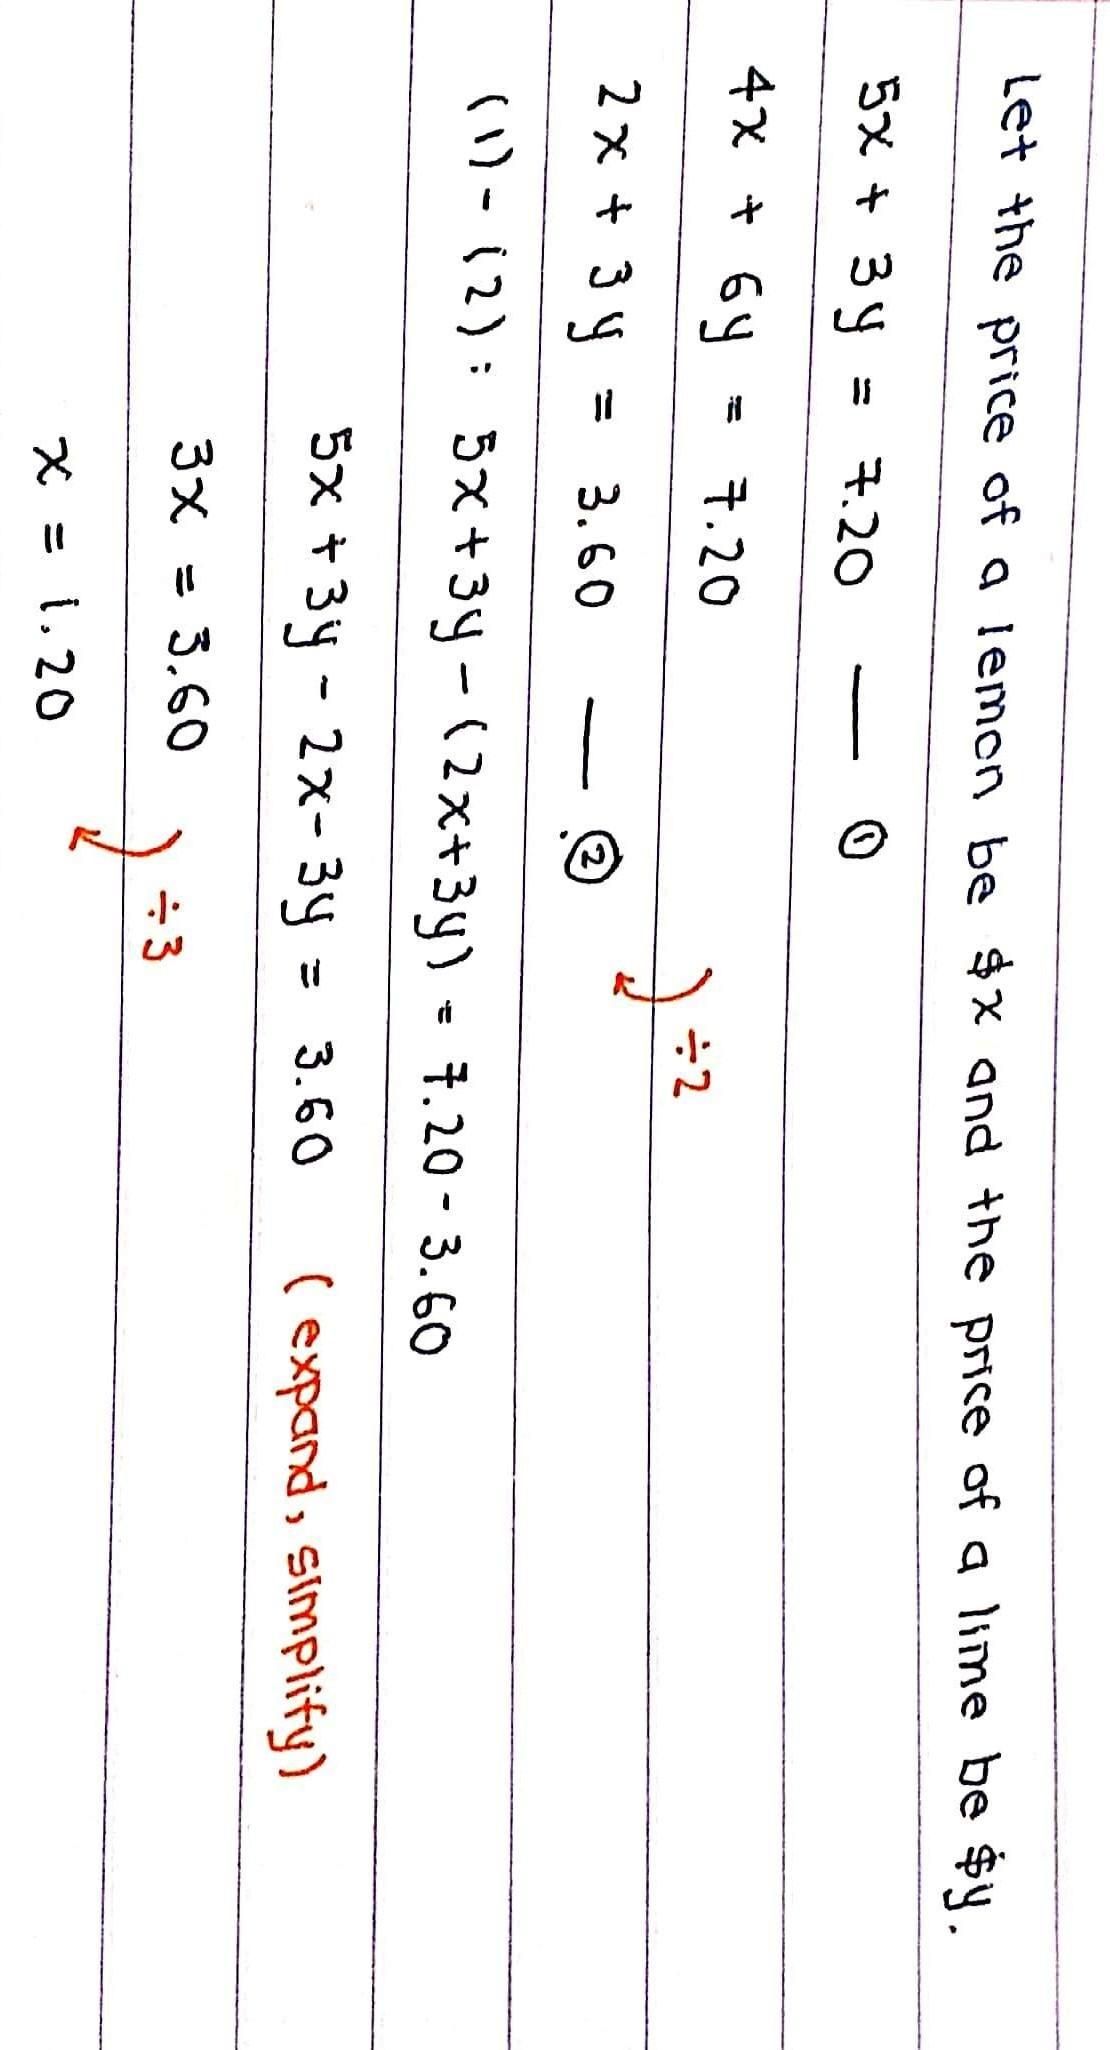 Let the price of a lemon be $x and the price of a lime be $y.
5x + 3y = 7.20 — ①
4x + 6y = 7.20
÷2
2x + 3y = 3.60 — ②
(1) - (2): 5x + 3y - (2x + 3y) = 7.20 - 3.60
5x + 3y - 2x - 3y = 3.60 (expand, simplify)
3x = 3.60
÷3
x = 1.20